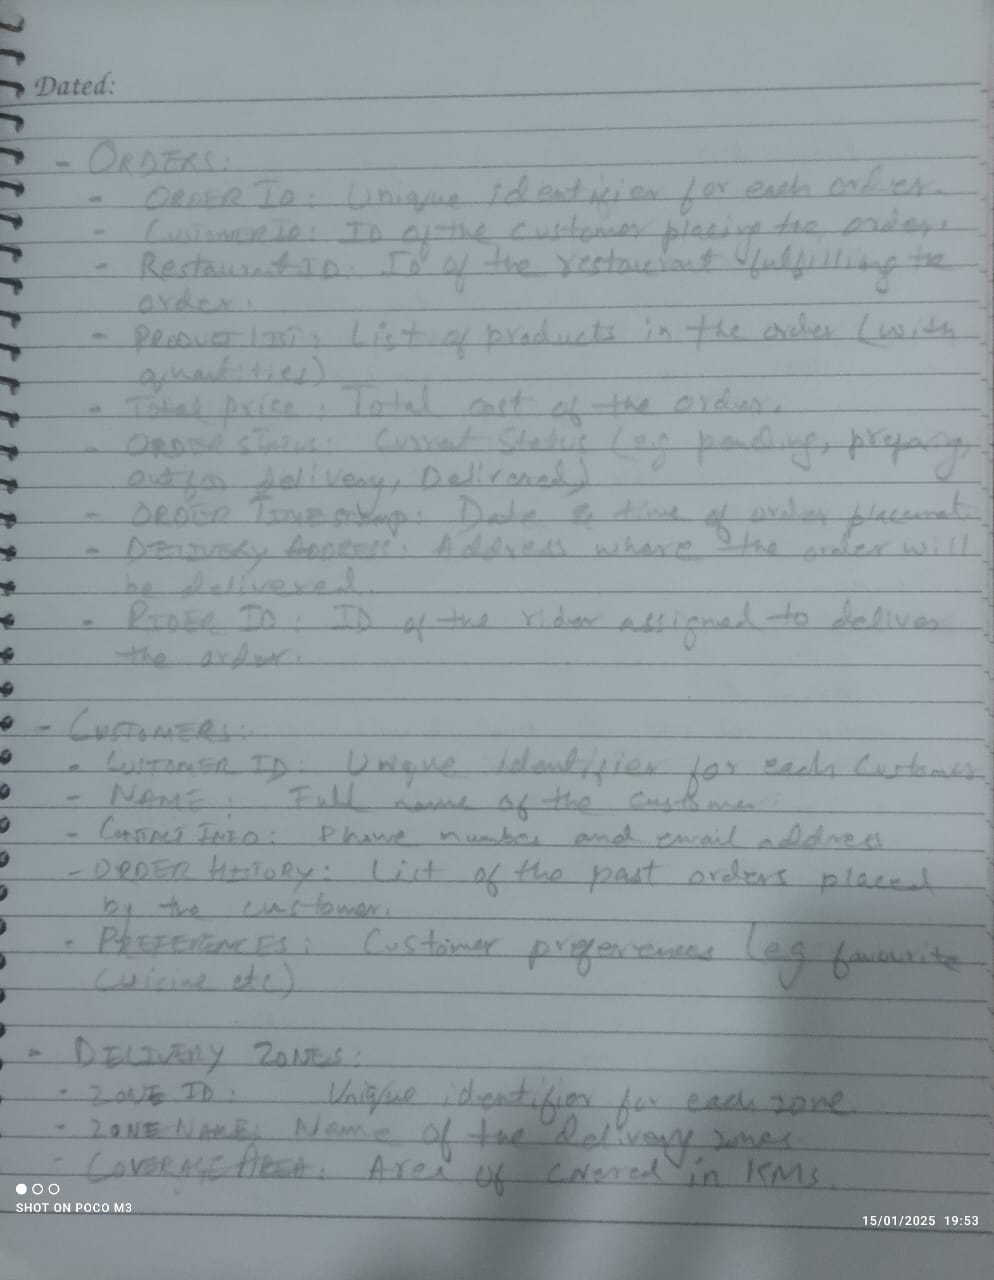 Dated:
- ORDERS:
- ORDER ID: Unique identifier for each order.
- Customer ID: ID of the customer placing the order.
- Restaurant ID: ID of the restaurant fulfilling the
order.
- PRODUCT LIST: List of products in the order (with
quantities)
- Total price: Total cost of the order.
- ORDER STATUS: Current Status (eg pending, preparg,
out for delivery, Delivered)
- ORDER Timestamp: Date & time of order placement
- DELIVERY ADDRESS: Address where the order will
be delivered.
- RIDER ID: ID of the rider assigned to deliver
the order.
- CUSTOMERS:
- CUSTOMER ID: Unique identifier for each Customer
- NAME: Full name of the customer
- CONTACT INFO: Phone number and email address
- ORDER HISTORY: List of the past orders placed
by the customer.
- PREFERENCES: Customer preferences (eg favourite
cuicine etc)
- DELIVERY ZONES:
- ZONE ID: Unique identifier for each zone
- ZONE NAME: Name of the delivery zones
- COVERAGE AREA: Area of covered in KMs.
SHOT ON POCO M3
15/01/2025 19:53